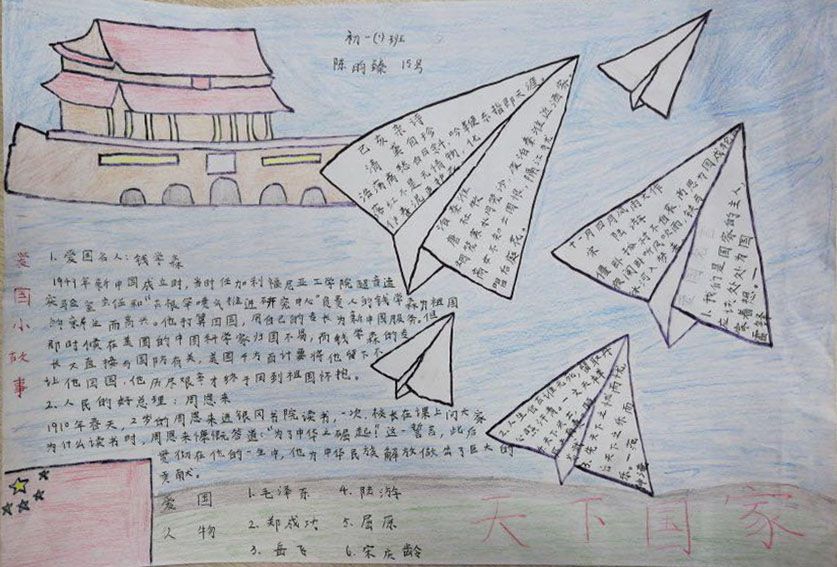 初一(1)班
陈昀臻 15号
己亥杂诗
清 龚自珍
浩荡离愁白日斜,吟鞭东指即天涯。
落红不是无情物,化
作春泥更护花。
泊秦淮
唐 杜牧
烟笼寒水月笼沙,夜泊秦淮近酒家。
商女不知亡国恨,隔江犹
唱后庭花。
十一月四日风雨大作
宋 陆游
僵卧孤村不自哀,尚思为国戍轮
夜阑卧听风吹雨,铁马
冰河入梦来
1.我们是国家的主人,
应该处处为国
家着想。—
雷锋
爱国小故事
1.爱国名人:钱学森
1949年新中国成立时,当时任加利福尼亚工学院超音速
实验室主任和"古根罕喷气推进研究中心"负责人的钱学森为祖国
的新生而高兴。他打算回国,用自己的专长为新中国服务。但
那时候在美国的中国科学家归国不易,而钱学森的专
长又直接与国防有关,美国千方百计要将他留下不
让他回国,他历尽艰辛才终于回到祖国怀抱。
2.人民的好总理:周恩来
1910年春天,2岁的周恩来进银冈书院读书,一次,校长在课上问大家
为什么读书时,周恩来慷慨答道:"为了中华之崛起!"这一誓言,此后
贯彻在他的一生中,他为中华民族解放做出了巨大的
贡献。
2.人生自古谁无死,留取丹
心照汗青—文天祥
3.先天下之忧而忧,
后天下之乐而
乐—范
仲淹
爱国
人物
1.毛泽东 4.陆游
2.郑成功 5.屈原
3.岳飞 6.宋庆龄
天下国家